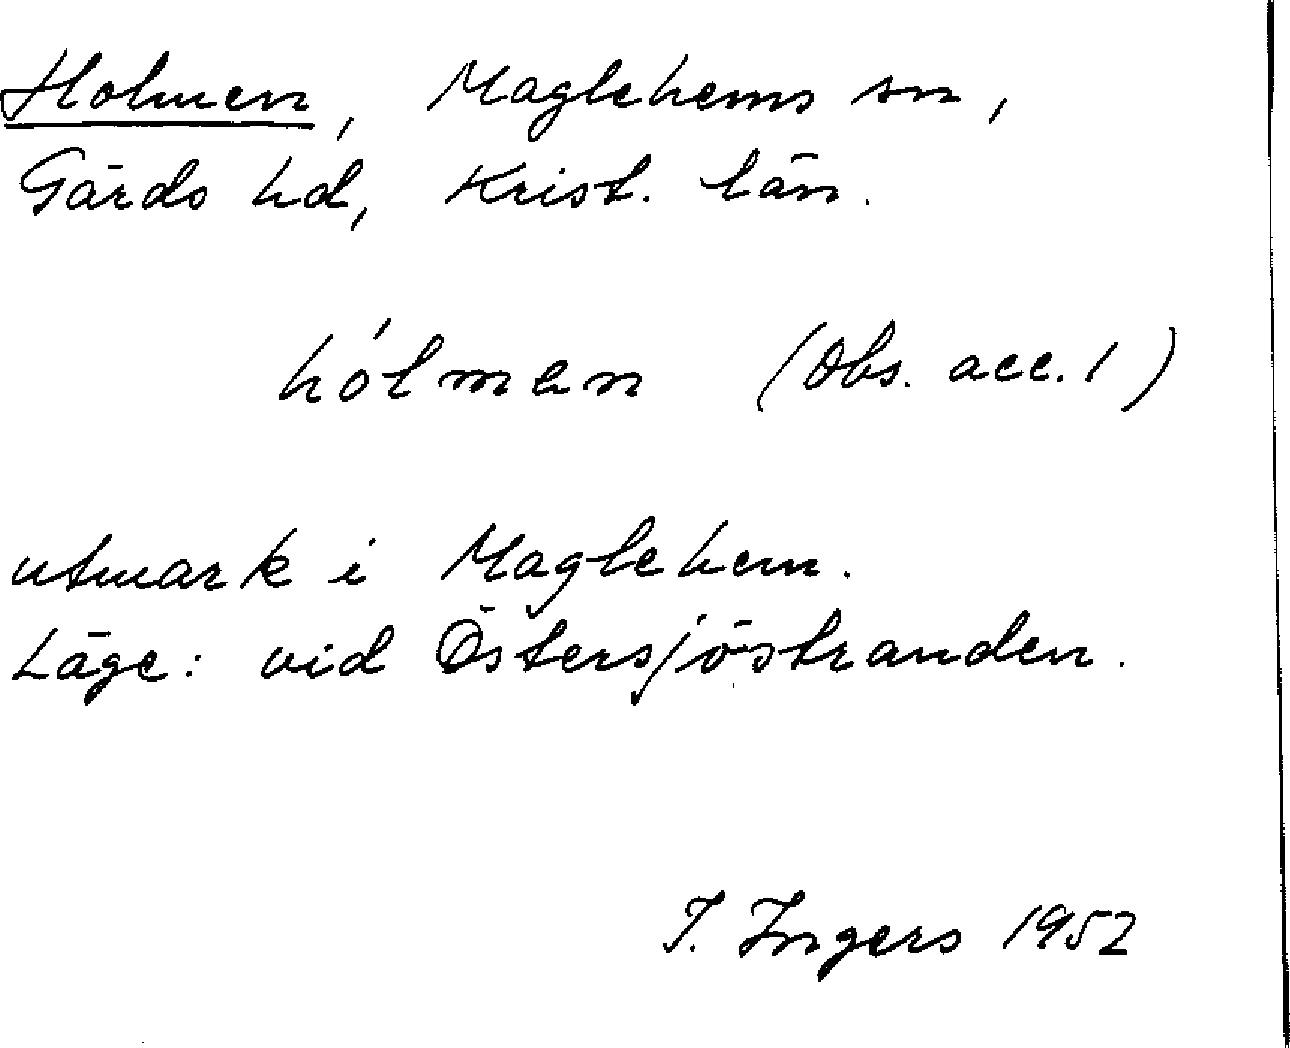 Holmen, Maglehems sn,
Gärds hd, Krist. län.
hólmen (Obs. acc. 1)
utmark i Maglehem.
Läge: vid Östersjöstranden.
I. Ingers 1952